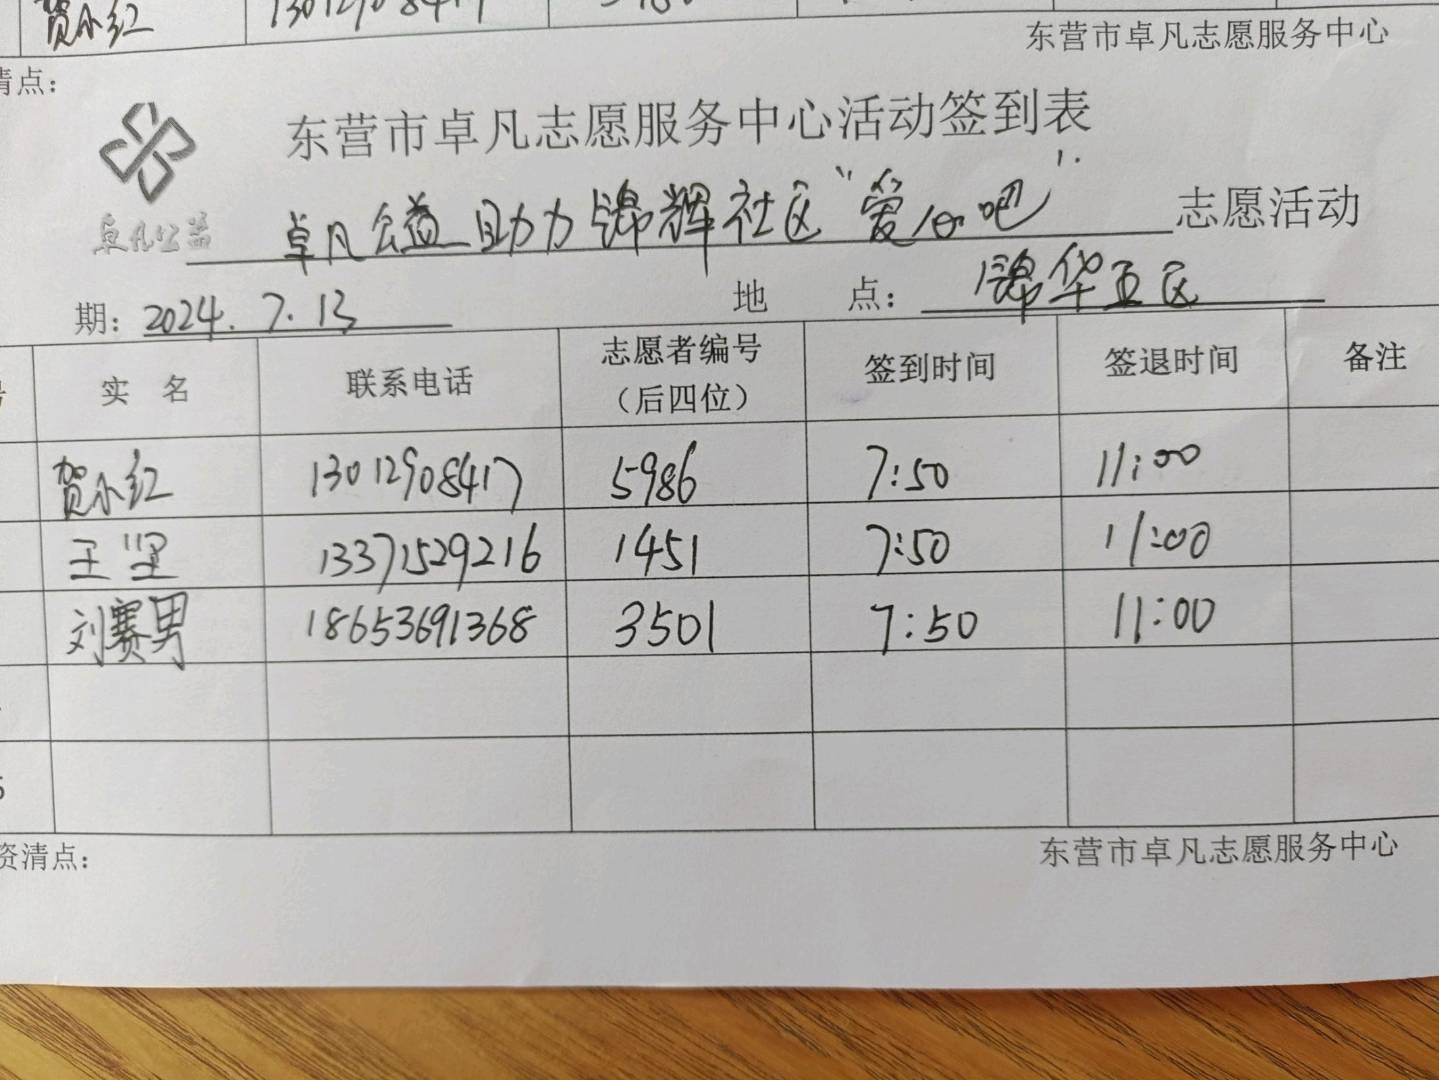 贺小红 13012908417
东营市卓凡志愿服务中心
清点：
东营市卓凡志愿服务中心活动签到表
卓凡公益
卓凡公益助力锦辉社区“爱心吧”志愿活动
期：2024.7.13 地 点：锦华五区
实 名 联系电话 志愿者编号（后四位） 签到时间 签退时间 备注
贺小红 13012908417 5986 7:50 11:00
王坚 13371529216 1451 7:50 11:00
刘赛男 18653691368 3501 7:50 11:00
5
资清点：
东营市卓凡志愿服务中心